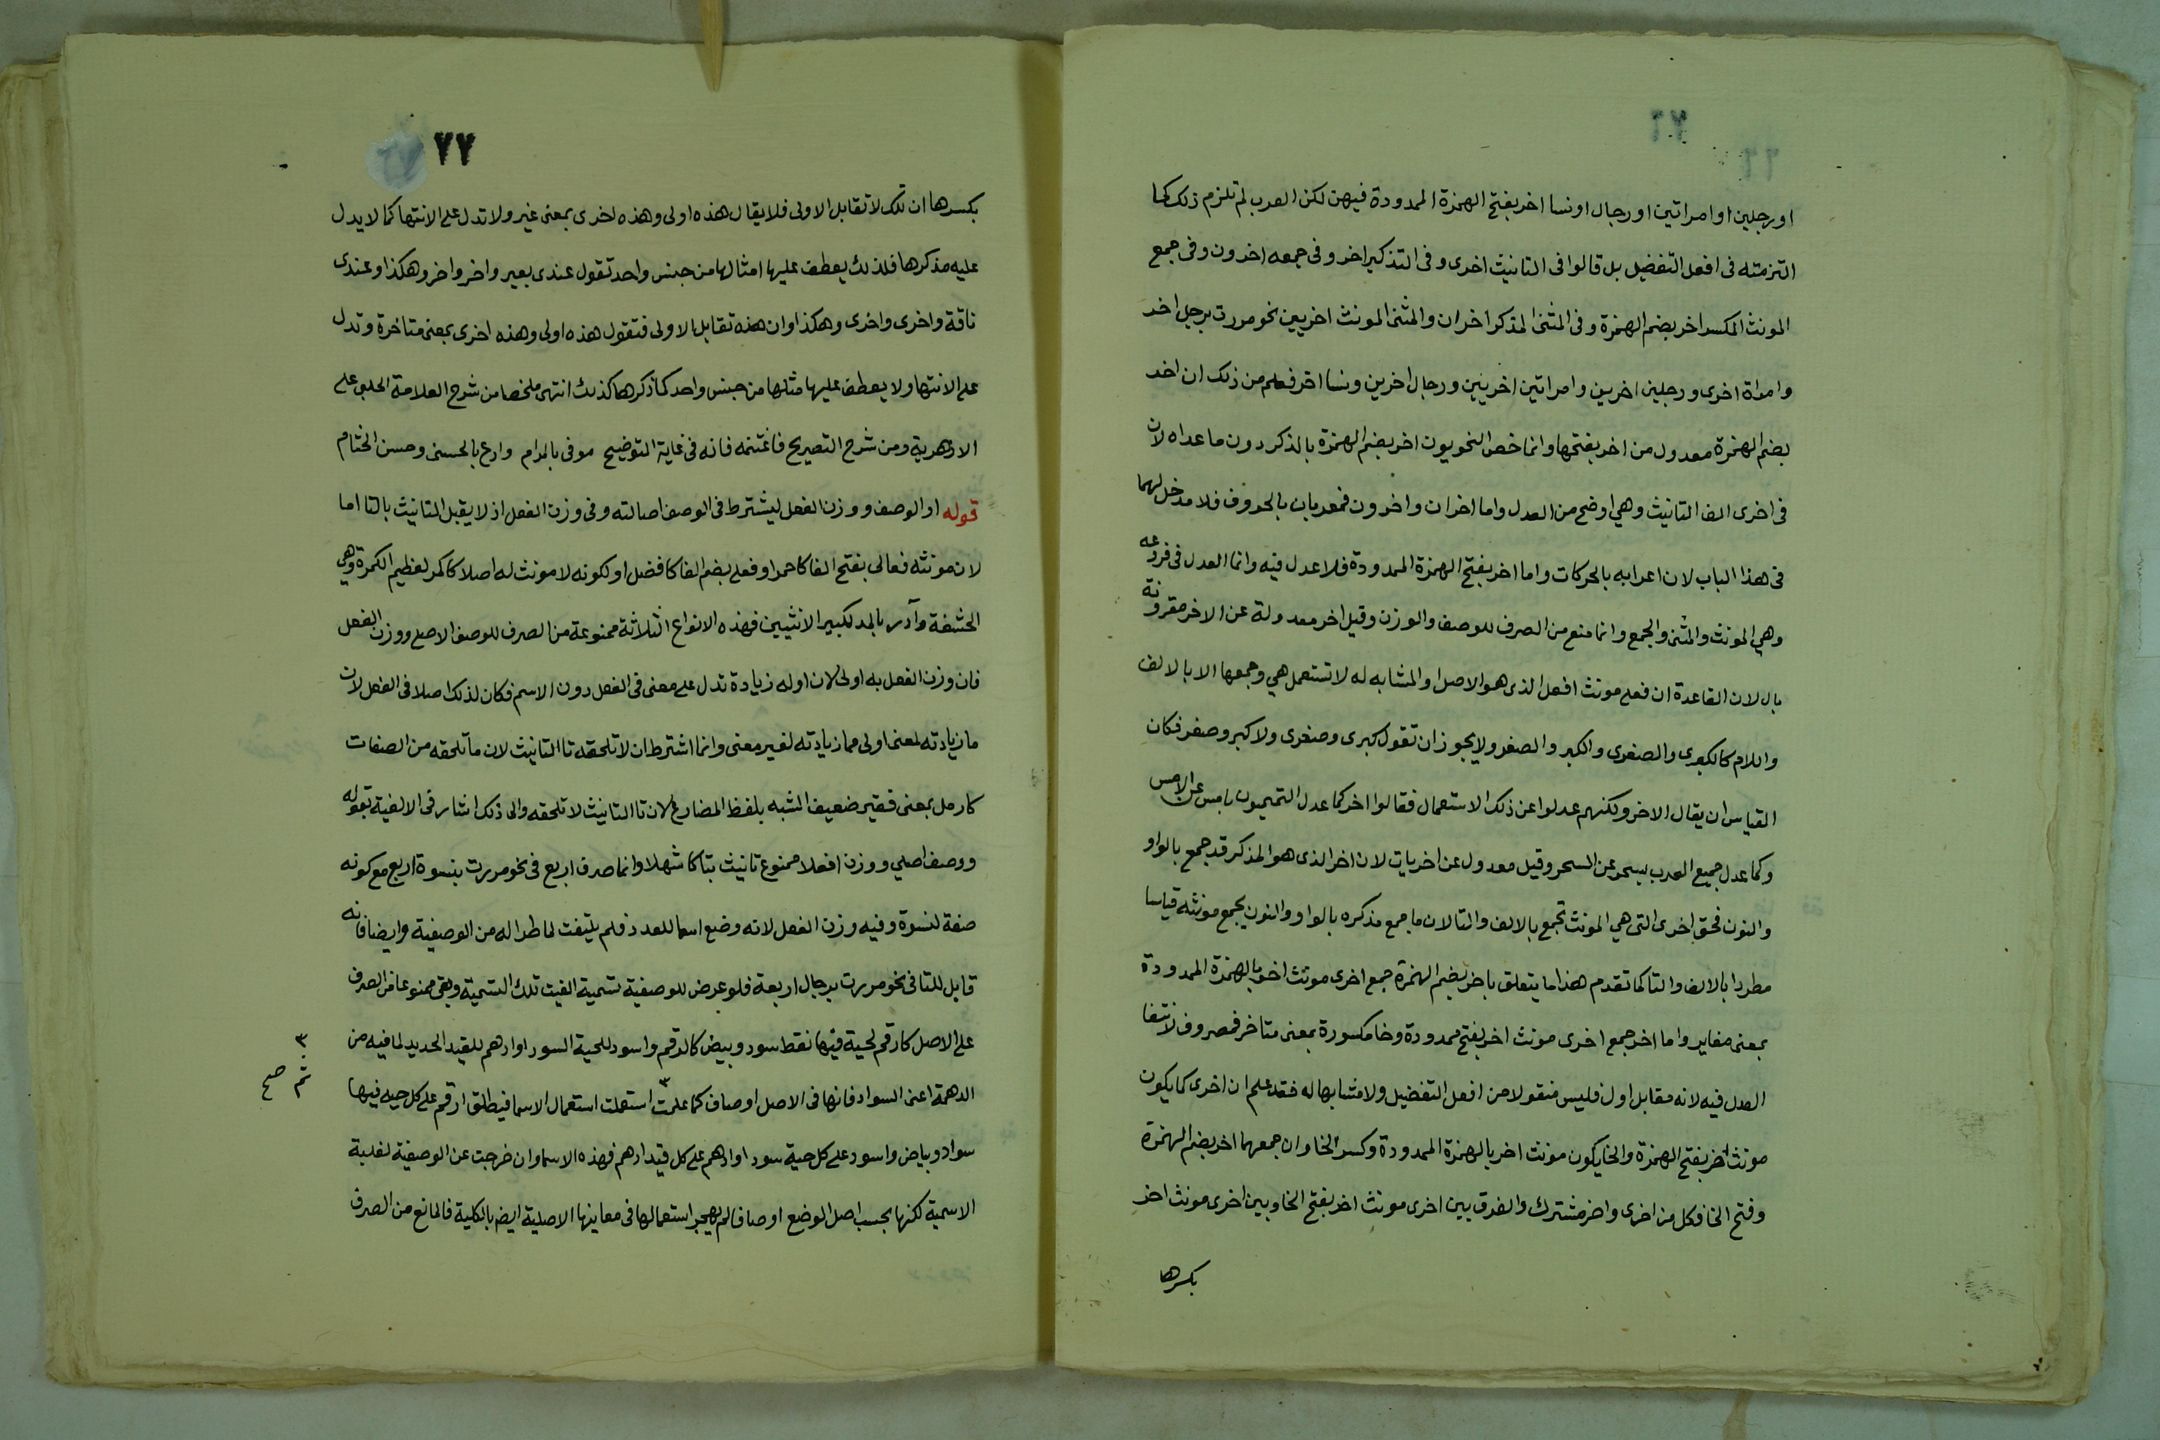 او رجلين او امراتين او رجال او نسا اخر بفتح الهمزة الممدودة فيهن لكن العرب لم تلزم ذلك كما
التزمته في افعل التفضيل بل قالوا في التانيث اخرى وفي التذكير اخر وفي جمعه اخرون وفي جمع
المونث المكسر اخر بضم الهمزة وفي المثنى المذكر اخران والمثنى المونث اخريين نحو مررت برجل اخر
وامراة اخرى ورجلين اخرين وامراتين اخريين ورجال اخرين ونسا اخر فعلم من ذلك ان اخر
بضم الهمزة معدول من اخر بفتحها وانما خص النحويون اخر بضم الهمزة بالذكر دون ما عداه لان
في اخرى الف التانيث وهي اوضح من العدل واما اخران واخرون فمعربان بالحروف فلا مدخل لهما
في هذا الباب لان اعرابه بالحركات واما اخر بفتح الهمزة الممدودة فلا عدل فيه وانما العدل في فروعه
وهي المونث والمثنى والجمع وانما منع من الصرف للوصف والوزن وقيل اخر معدولة عن الاخر مقرونة
بال لان القاعدة ان فعلى مونث افعل الذي هو الاصل او المشابه له لا تستعمل هي وجمعها الا بالالف
واللام كالكبرى والصغرى والكبر والصغر ولا يجوز ان تقول كبرى وصغرى ولا كبر وصغر فكان
القياس ان يقال الاخر ولكنهم عدلوا عن ذلك الاستعمال فقالوا اخر كما عدل التميميون بامس عن الامس
وكما عدل جميع العرب بسحر عن السحر وقيل معدول عن اخريات لان اخر الذي هو المذكر قد جمع بالواو
والنون فحق اخرى التي هي المونث تجمع بالالف والتا لان ما جمع مذكره بالواو والنون يجمع مونثه قياسا
مطردا بالالف والتا كما تقدم هذا ما يتعلق باخر بضم الهمزة جمع اخرى مونث اخر بالهمزة الممدودة
بمعنى مغاير واما اخر جمع اخرى مونث اخر بفتح ممدودة وخا مكسورة بمعنى متاخر فمصروف لانتفا
العدل فيه لانه مقابل اول فليس منقولا من افعل التفضيل ولا مشابها له فقد علم ان اخرى كما يكون
مونث اخر بفتح الهمزة والخا يكون مونث اخر بالهمزة الممدودة وكسر الخا وان جمعهما اخر بضم الهمزة
وفتح الخا فكل من اخرى واخر مشترك والفرق بين اخرى مونث اخر بفتح الخا وبين اخرى مونث اخر
بكسرها
٧٧
بكسرها ان تلك لا تقابل الاولى فلا يقال هذه اولى وهذه اخرى بمعنى غير ولا تدل على الانتها كما لا يدل
عليه مذكرها فلذلك يعطف عليها امثالها من جنس واحد تقول عندي بعير واخر واخر وهكذا وعندي
ناقة واخرى واخرى وهكذا وان هذه تقابل الاولى فتقول هذه اولى وهذه اخرى بمعنى متاخرة وتدل
على الانتها ولا يعطف عليها مثلها من جنس واحد كما ذكرها كذلك انتهى ملخصا من شرح العلامة الحلبي على
الازهرية ومن شرح التصريح فاغتنمه فانه في غاية التوضيح موفى بالمرام وادع بالحسنى وحسن الختام
قوله او الوصف ووزن الفعل ليشترط في الوصف اصالته وفي وزن الفعل اذ لا يقبل التانيث بالتا اما
لان مونثه فعالى بفتح الفا كاحمر او فعلى بضم الفا كافضل او لكونه لا مونث له اصلا كاكمر لعظيم الكمرة وهي
الحشفة وآدر بالمد لكبير الانثيين فهذه الانواع الثلاثة ممنوعة من الصرف للوصف الاصلي ووزن الفعل
فان وزن الفعل به اولى لان اوله زيادة تدل على معنى في الفعل دون الاسم فكان لذلك اصلا في الفعل لان
ما زيادته لمعنى اولى مما زيادته لغير معنى وانما اشترط ان لا تلحقه تا التانيث لان ما تلحقه من الصفات
كارمل بمعنى فقير ضعيف الشبه بلفظ المضارع لان تا التانيث لا تلحقه والى ذلك اشار في الالفية بقوله
ووصف اصلي ووزن افعلا ممنوع تانيث بتا كاشهلا وانما صرف اربع في نحو مررت بنسوة اربع مع كونه
صفة لنسوة وفيه وزن الفعل لانه وضع اسما للعدد فلم يلتفت لما طرا له من الوصفية وايضا فانه
قابل للتا في نحو مررت برجال اربعة فلو عرض للوصفية تسمية الغيت تلك التسمية وبقي ممنوعا من الصرف
على الاصل كارقم لحية فيها نقط سود وبيض كالرقم واسود للحية السودا وادهم للقيد الحديد لما فيه من
الدهمة اعني السواد فانها في الاصل اوصاف كما علمت ٣ استعملت استعمال الاسما فيطلق ارقم على كل حيه فيها
سواد وبياض واسود على كل حية سودا وادهم على كل قيد ادهم فهذه الاسما وان خرجت عن الوصفية لغلبة
الاسمية لكنها بحسب اصل الوضع اوصاف لم يهجر استعمالها في معانيها الاصلية ايض بالكلية فالمانع من الصرف
٣
ثم صح